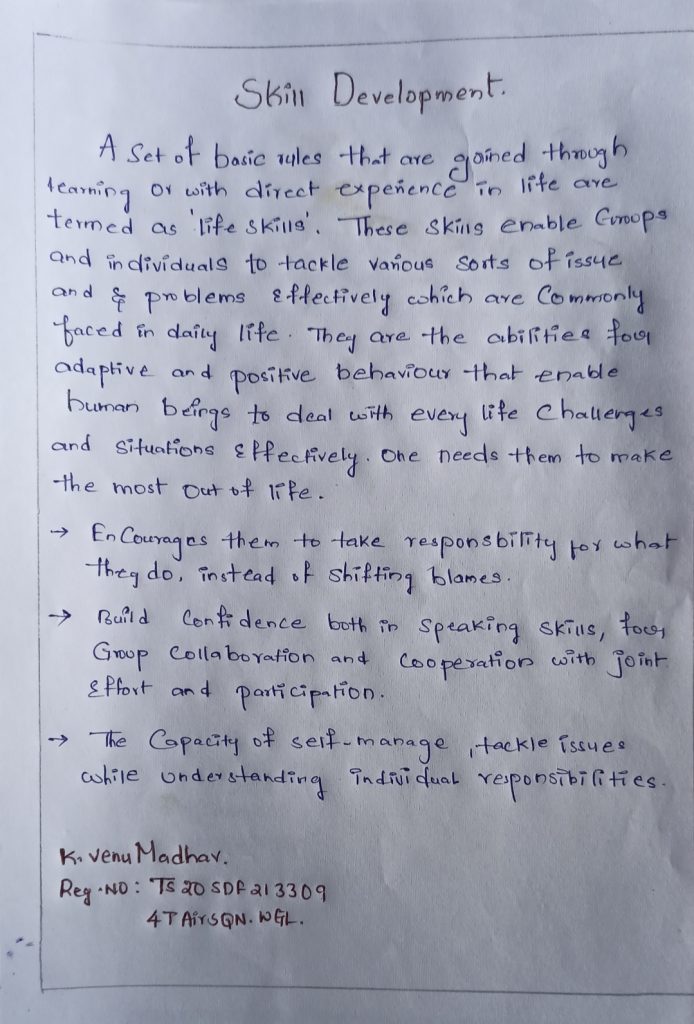 Skill Development.
A Set of basic rules that are gained through
learning or with direct experience in life are
termed as 'life skills'. These skills enable Groops
and individuals to tackle various sorts of issue
and & problems effectively which are Commonly
faced in daily life. They are the abilities for
adaptive and positive behaviour that enable
human beings to deal with every life Challenges
and Situations effectively. One needs them to make
the most out of life.
→ EnCourages them to take responsbility for what
they do, instead of shifting blames.
→ Build Confidence both in Speaking Skills, for
Group Collaboration and Cooperation with joint
Effort and participation.
→ The Capacity of self-manage, tackle issues
while understanding individual responsibilities.
K. Venu Madhav.
Reg.NO: TS 20 SDF 213309
4T Air SQN. WGL.